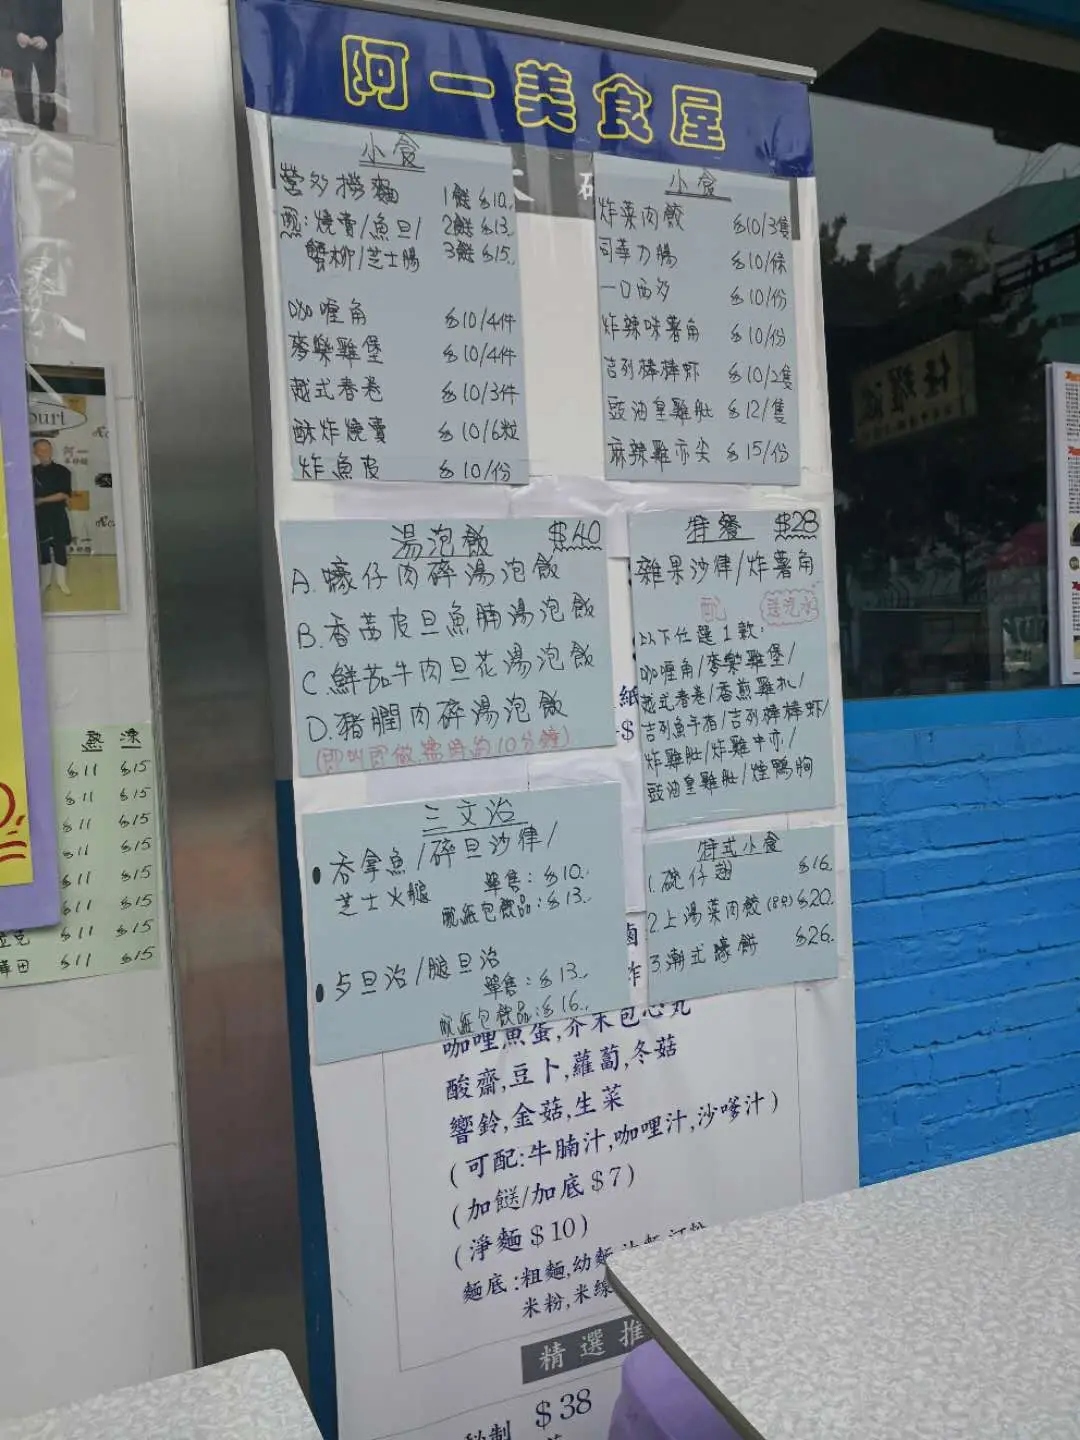 阿一美食屋
小食
營多撈麵 1餸$10.
餸:燒賣/魚旦/ 2餸$13.
蟹柳/芝士腸 3餸$15.
咖喱角 $10/4件
麥樂雞堡 $10/4件
越式春卷 $10/3件
酥炸燒賣 $10/6粒
炸魚皮 $10/份
小食
炸菜肉餃 $10/3隻
司華力腸 $10/條
一口西多 $10/份
炸辣味薯角 $10/份
吉列棒棒虾 $10/2隻
豉油皇雞肶 $12/隻
麻辣雞亦尖 $15/份
湯泡飯 $40
A.蠔仔肉碎湯泡飯
B.香茜皮旦魚腩湯泡飯
C.鮮茄牛肉旦花湯泡飯
D.豬膶肉碎湯泡飯
(即叫即做,需時約10分鐘)
特餐 $28
雜果沙律/炸薯角
配 送汽水
以下任選1款:
咖喱角/麥樂雞堡/
越式春卷/香煎雞扒/
吉列魚手指/吉列棒棒虾/
炸雞肶/炸雞中亦/
豉油皇雞肶/煙鴨胸
三文治
吞拿魚/碎旦沙律/
芝士火腿 單售:$10.
配紙包飲品:$13.
歺旦治/腿旦治
單售:$13.
配紙包飲品:$16.
特式小食
1.碗仔翅 $16.
2.上湯菜肉餃(8只)$20.
3.潮式蠔餅 $26.
咖哩魚蛋,芥末包心丸
酸齋,豆卜,蘿蔔,冬菇
響鈴,金菇,生菜
(可配:牛腩汁,咖哩汁,沙嗲汁)
(加餸/加底$7)
(淨麵$10)
麵底:粗麵,幼麵
米粉,米線
精選推
$38
熱 凍
$11 $15
$11 $15
$11 $15
$11 $15
$11 $15
$11 $15
$11 $15
$11 $15